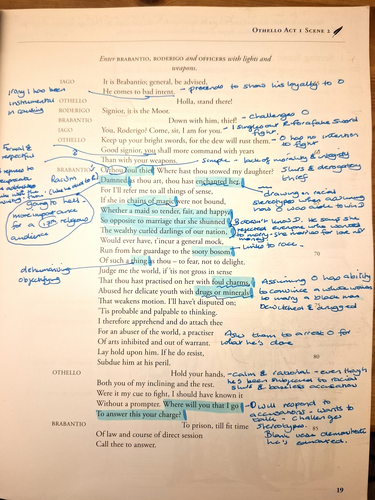 OTHELLO ACT 1 SCENE 2
Enter BRABANTIO, RODERIGO and OFFICERS with lights and
weapons.
IAGO
It is Brabantio; general, be advised.
He comes to bad intent.
- pretends to show his loyalty to O
OTHELLO
Holla, stand there!
RODERIGO
Signior, it is the Moor.
BRABANTIO
Down with him, thief!
- challenges O
IAGO
You, Roderigo? Come, sir, I am for you.
- I singles out R for a fake sword
fight.
OTHELLO
Keep up your bright swords, for the dew will rust them.
- O has no intention
to fight
Good signior, you shall more command with years
Than with your weapons.
- simple - lack of
BRABANTIO
O thou foul thief! Where hast thou stowed my daughter?
Slurs & derogatory
Damned as thou art, thou hast enchanted her,
For I'll refer me to all things of sense,
If she in chains of magic were not bound,
Whether a maid so tender, fair, and happy,
So opposite to marriage that she shunned
The wealthy curled darlings of our nation,
Would ever have, t'incur a general mock,
Run from her guardage to the sooty bosom
70
Of such a thing as thou – to fear, not to delight.
Judge me the world, if 'tis not gross in sense
That thou hast practised on her with foul charms,
Abused her delicate youth with drugs or minerals
That weakens motion. I'll have't disputed on;
'Tis probable and palpable to thinking.
I therefore apprehend and do attach thee
For an abuser of the world, a practiser
Of arts inhibited and out of warrant.
Lay hold upon him. If he do resist,
80
Subdue him at his peril.
OTHELLO
Hold your hands,
Both you of my inclining and the rest.
Were it my cue to fight, I should have known it
Without a prompter. Where will you that I go
To answer this your charge?
BRABANTIO
To prison, till fit time
85
Of law and course of direct session
Call thee to answer.
irony I has been
instrumental
in causing
Formal &
respectful
Racism
going to hell -
more importance
for a
religious
audience
dehumanising
objectifying
- drawing on racial
stereotypes when assuming
- links to race.
Assuming O has ability
to convince a white woman
to marry a black man.
Bewitched & drugged
Ask them to arrest O for
what he's done
- calm & rational - even though
he's been subjected to racial
slurs & baseless accusation
- O will respond to
accusations - wants to
talk - challenges
stereotypes.
Blank verse demonstrates
he's
19